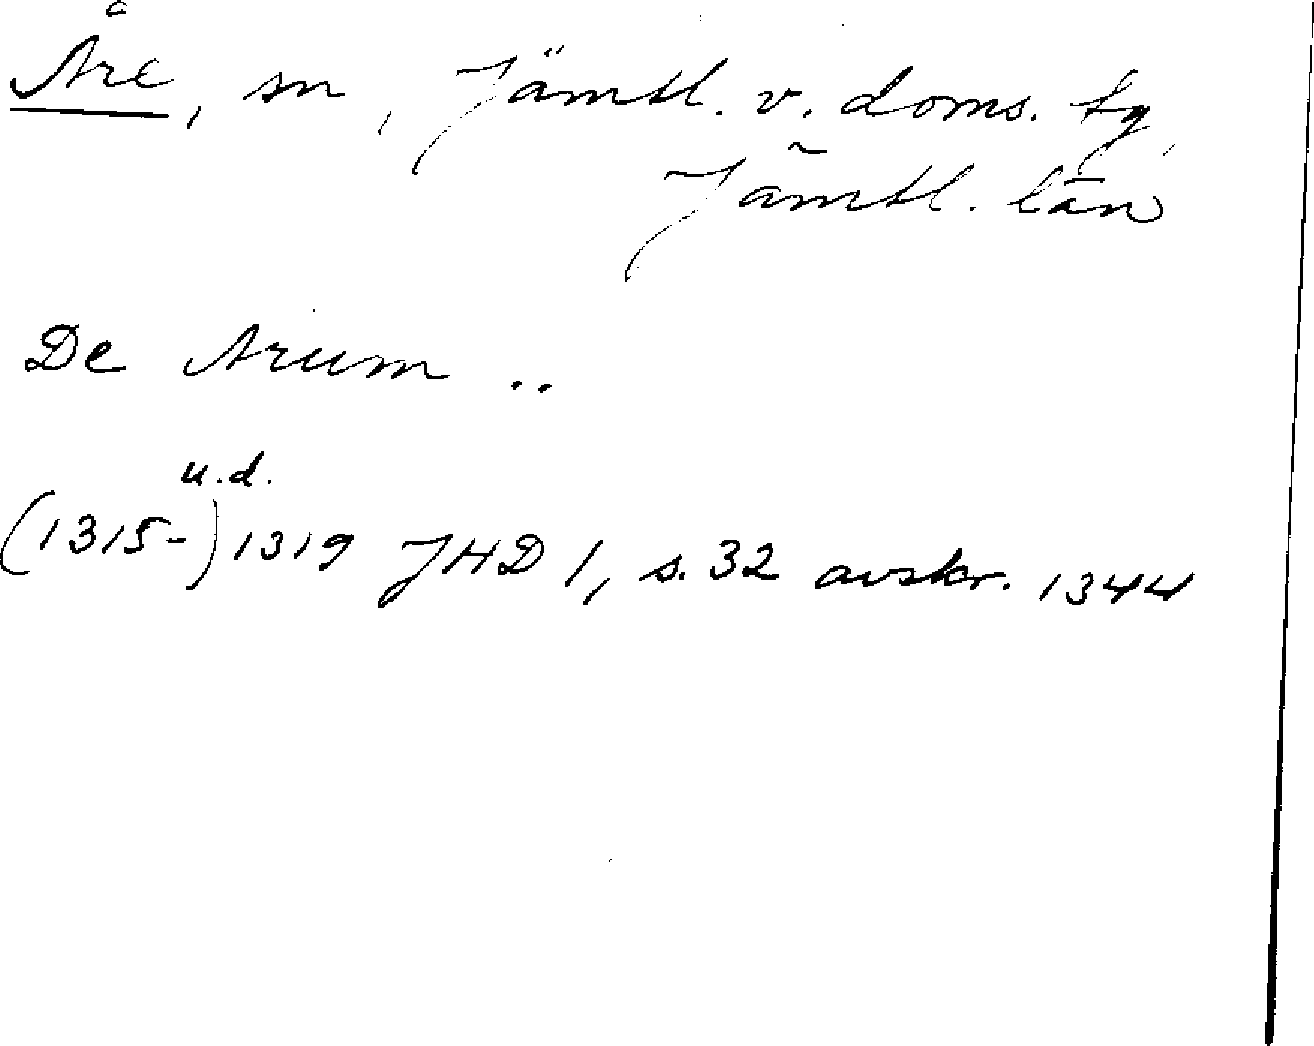 Åre, sn, Jämtl. v. doms. tg,
Jämtl. län
De Arum ..
u.d.
(1315-) 1319 JHD 1, s. 32 avskr. 1344